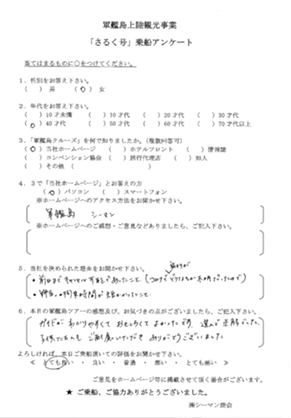 軍艦島上陸観光事業
「さるく号」乗船アンケート
当てはまるものに○をつけてください。
1．性別をお答え下さい。
（　）男　（○）女
2．年代をお答え下さい。
（　）10才未満　（　）10才代　（　）20才代　（　）30才代
（○）40才代　（　）50才代　（　）60才代　（　）70才以上
3．「軍艦島クルーズ」を何で知りましたか。（複数回答可）
（○）当社ホームページ　（　）ホテルフロント　（　）情報誌
（　）コンベンション協会　（　）旅行代理店　（　）知人
（　）その他（　）
4．3で「当社ホームページ」とお答えの方
（○）パソコン　（　）スマートフォン
※ホームページへのアクセス方法をお聞かせ下さい。
軍艦島　シーマン
※ホームページへのご感想・ご意見などありましたら、ご記入下さい。
5．当社を決められた理由をお聞かせ下さい。
6．本日の軍艦島ツアーの感想及び、お気づきの点がございましたら、ご記入下さい。
ガイドがわかりやすくて おもしろくて よかったです。
ありがとうございました
よろしければ、本日ご乗船頂いての評価をお聞かせ下さい。
とても良い ・ 良い ・ 普通 ・ 悪い ・ とても悪い
ご意見をホームページ等に掲載させて頂く場合がございます。
★ ご乗船、ご協力ありがとうございました。
㈱シーマン商会